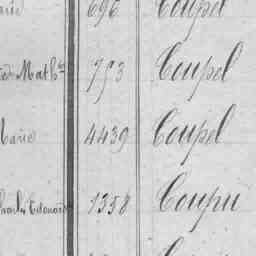 696 Coupel
Math 793 Coupel
Marie 4439 Coupel
Charles Edouard 1358 Coupu